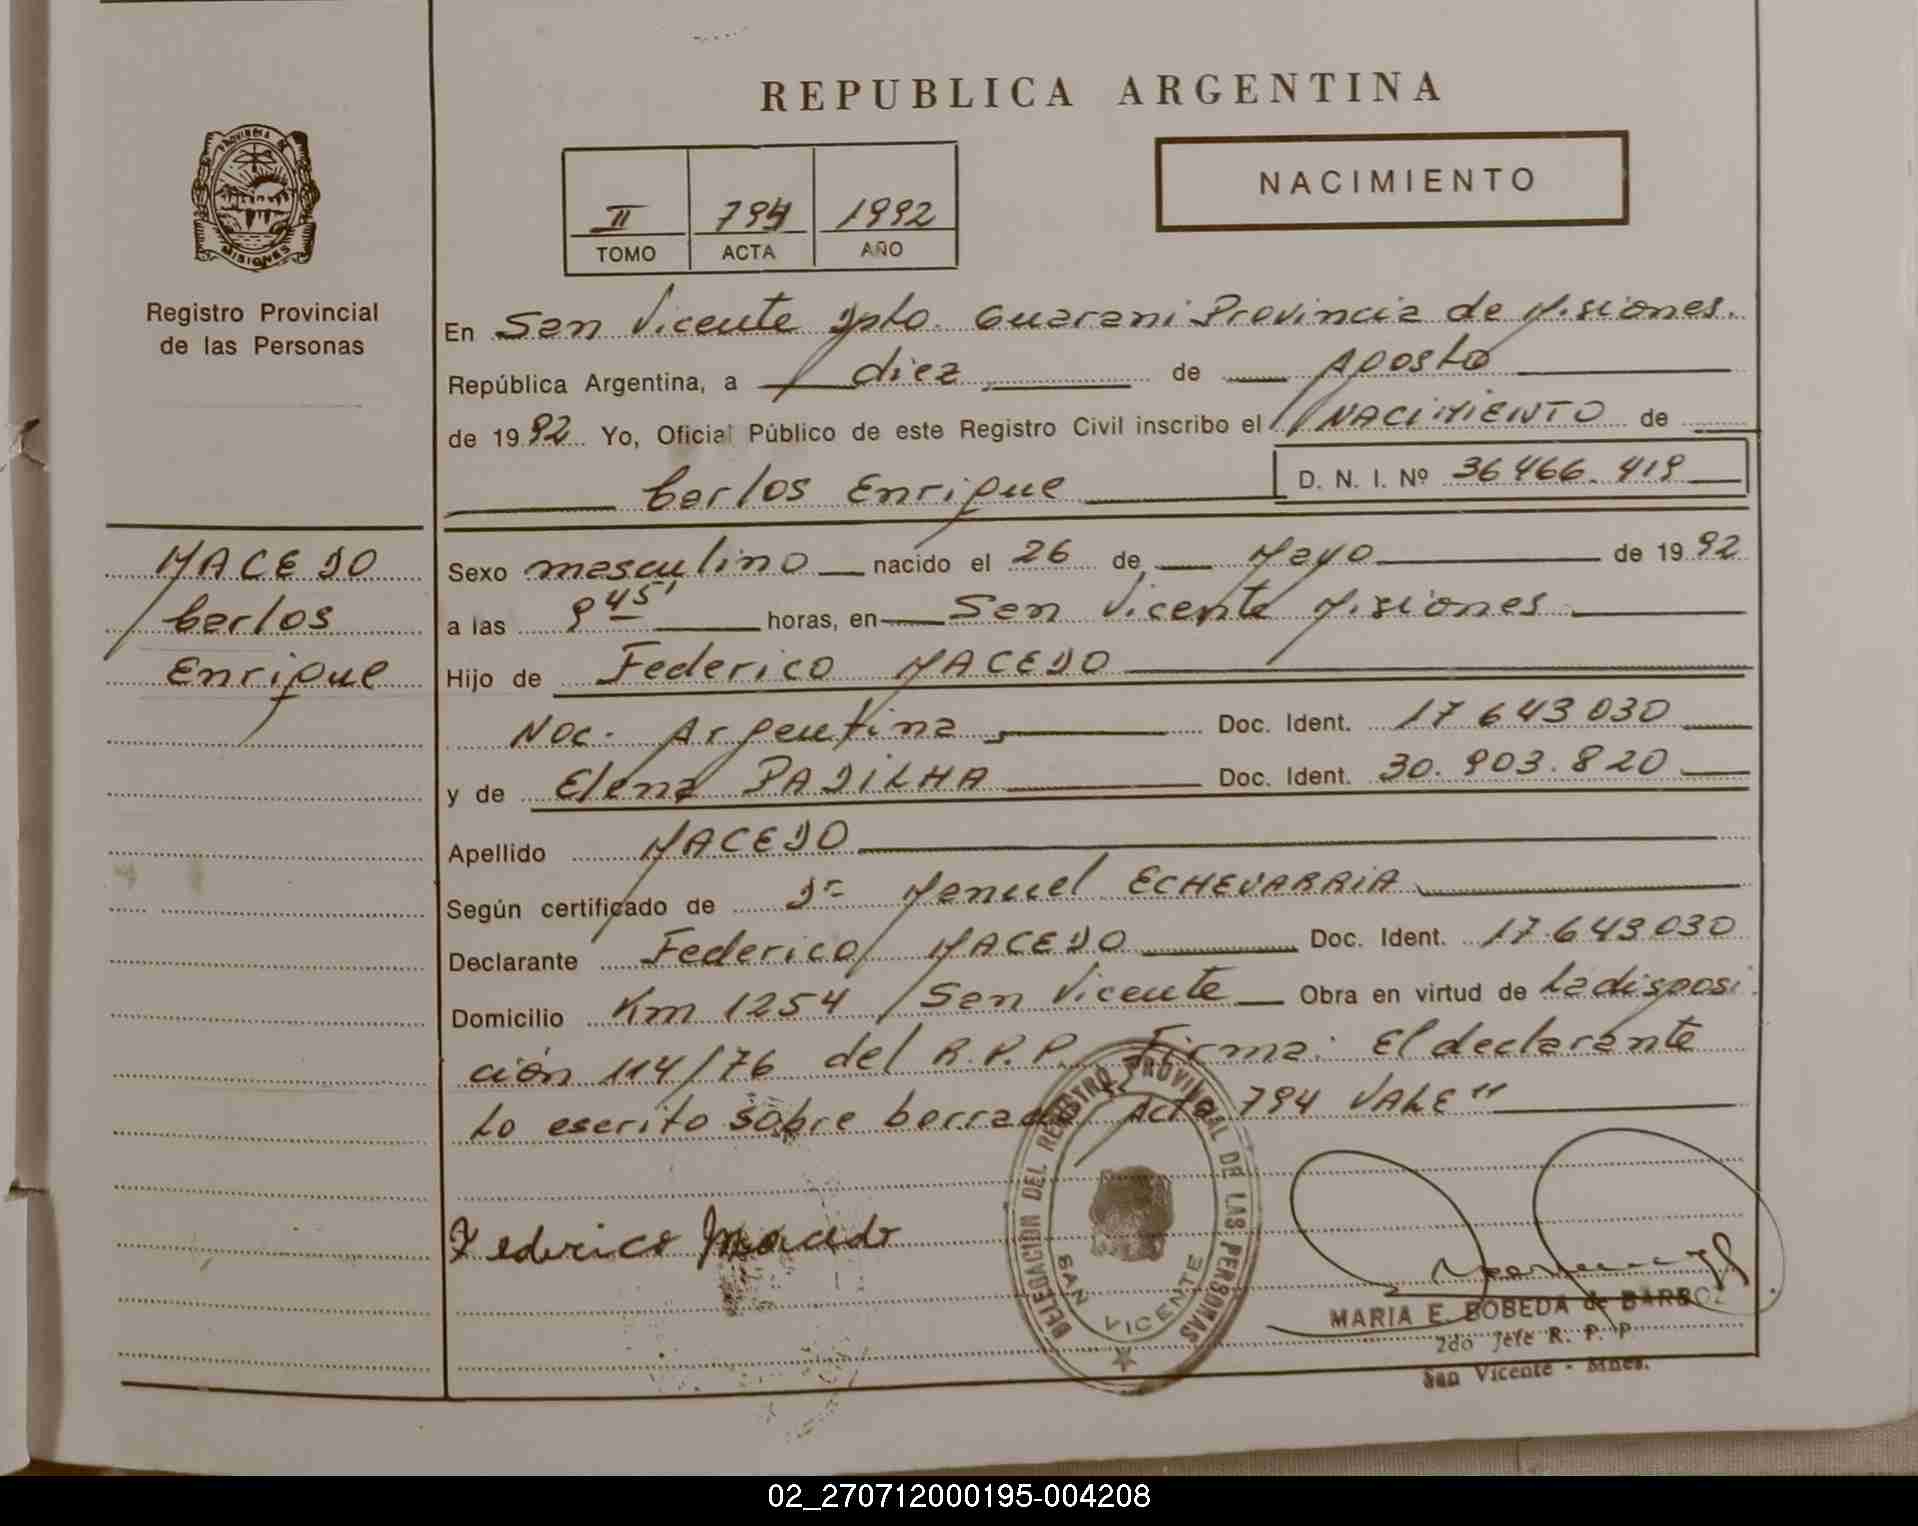 REPUBLICA ARGENTINA
NACIMIENTO
II 794 1992
TOMO ACTA AÑO
PROVINCIA DE MISIONES
Registro Provincial
de las Personas
En San Vicente Dpto. Guarani Provincia de Misiones.
República Argentina, a diez de Agosto
de 1992 Yo, Oficial Público de este Registro Civil inscribo el NACIMIENTO de
Carlos Enrique D. N. I. Nº 36466.419
MACEDO
Carlos
Enrique
Sexo masculino nacido el 26 de Mayo de 1992
a las 9 45' horas, en San Vicente Misiones
Hijo de Federico MACEDO
Nac. Argentina Doc. Ident. 17 643 030
y de Elena PADILHA Doc. Ident. 30.903.820
Apellido MACEDO
Según certificado de Dr Manuel ECHEVARRIA
Declarante Federico MACEDO Doc. Ident. 17.643030
Domicilio Km 1254 San Vicente Obra en virtud de La disposi
ción 114/76 del R.P.P. Firma: El declarante
Lo escrito sobre borrado Acta 794 VALE"
Federico Macedo
DELEGACION DEL REGISTRO PROVINCIAL DE LAS PERSONAS
SAN VICENTE
MARIA E. BOBEDA de BARBOZ
2do Jefe R. P. P
San Vicente - Mnes.
02_270712000195-004208